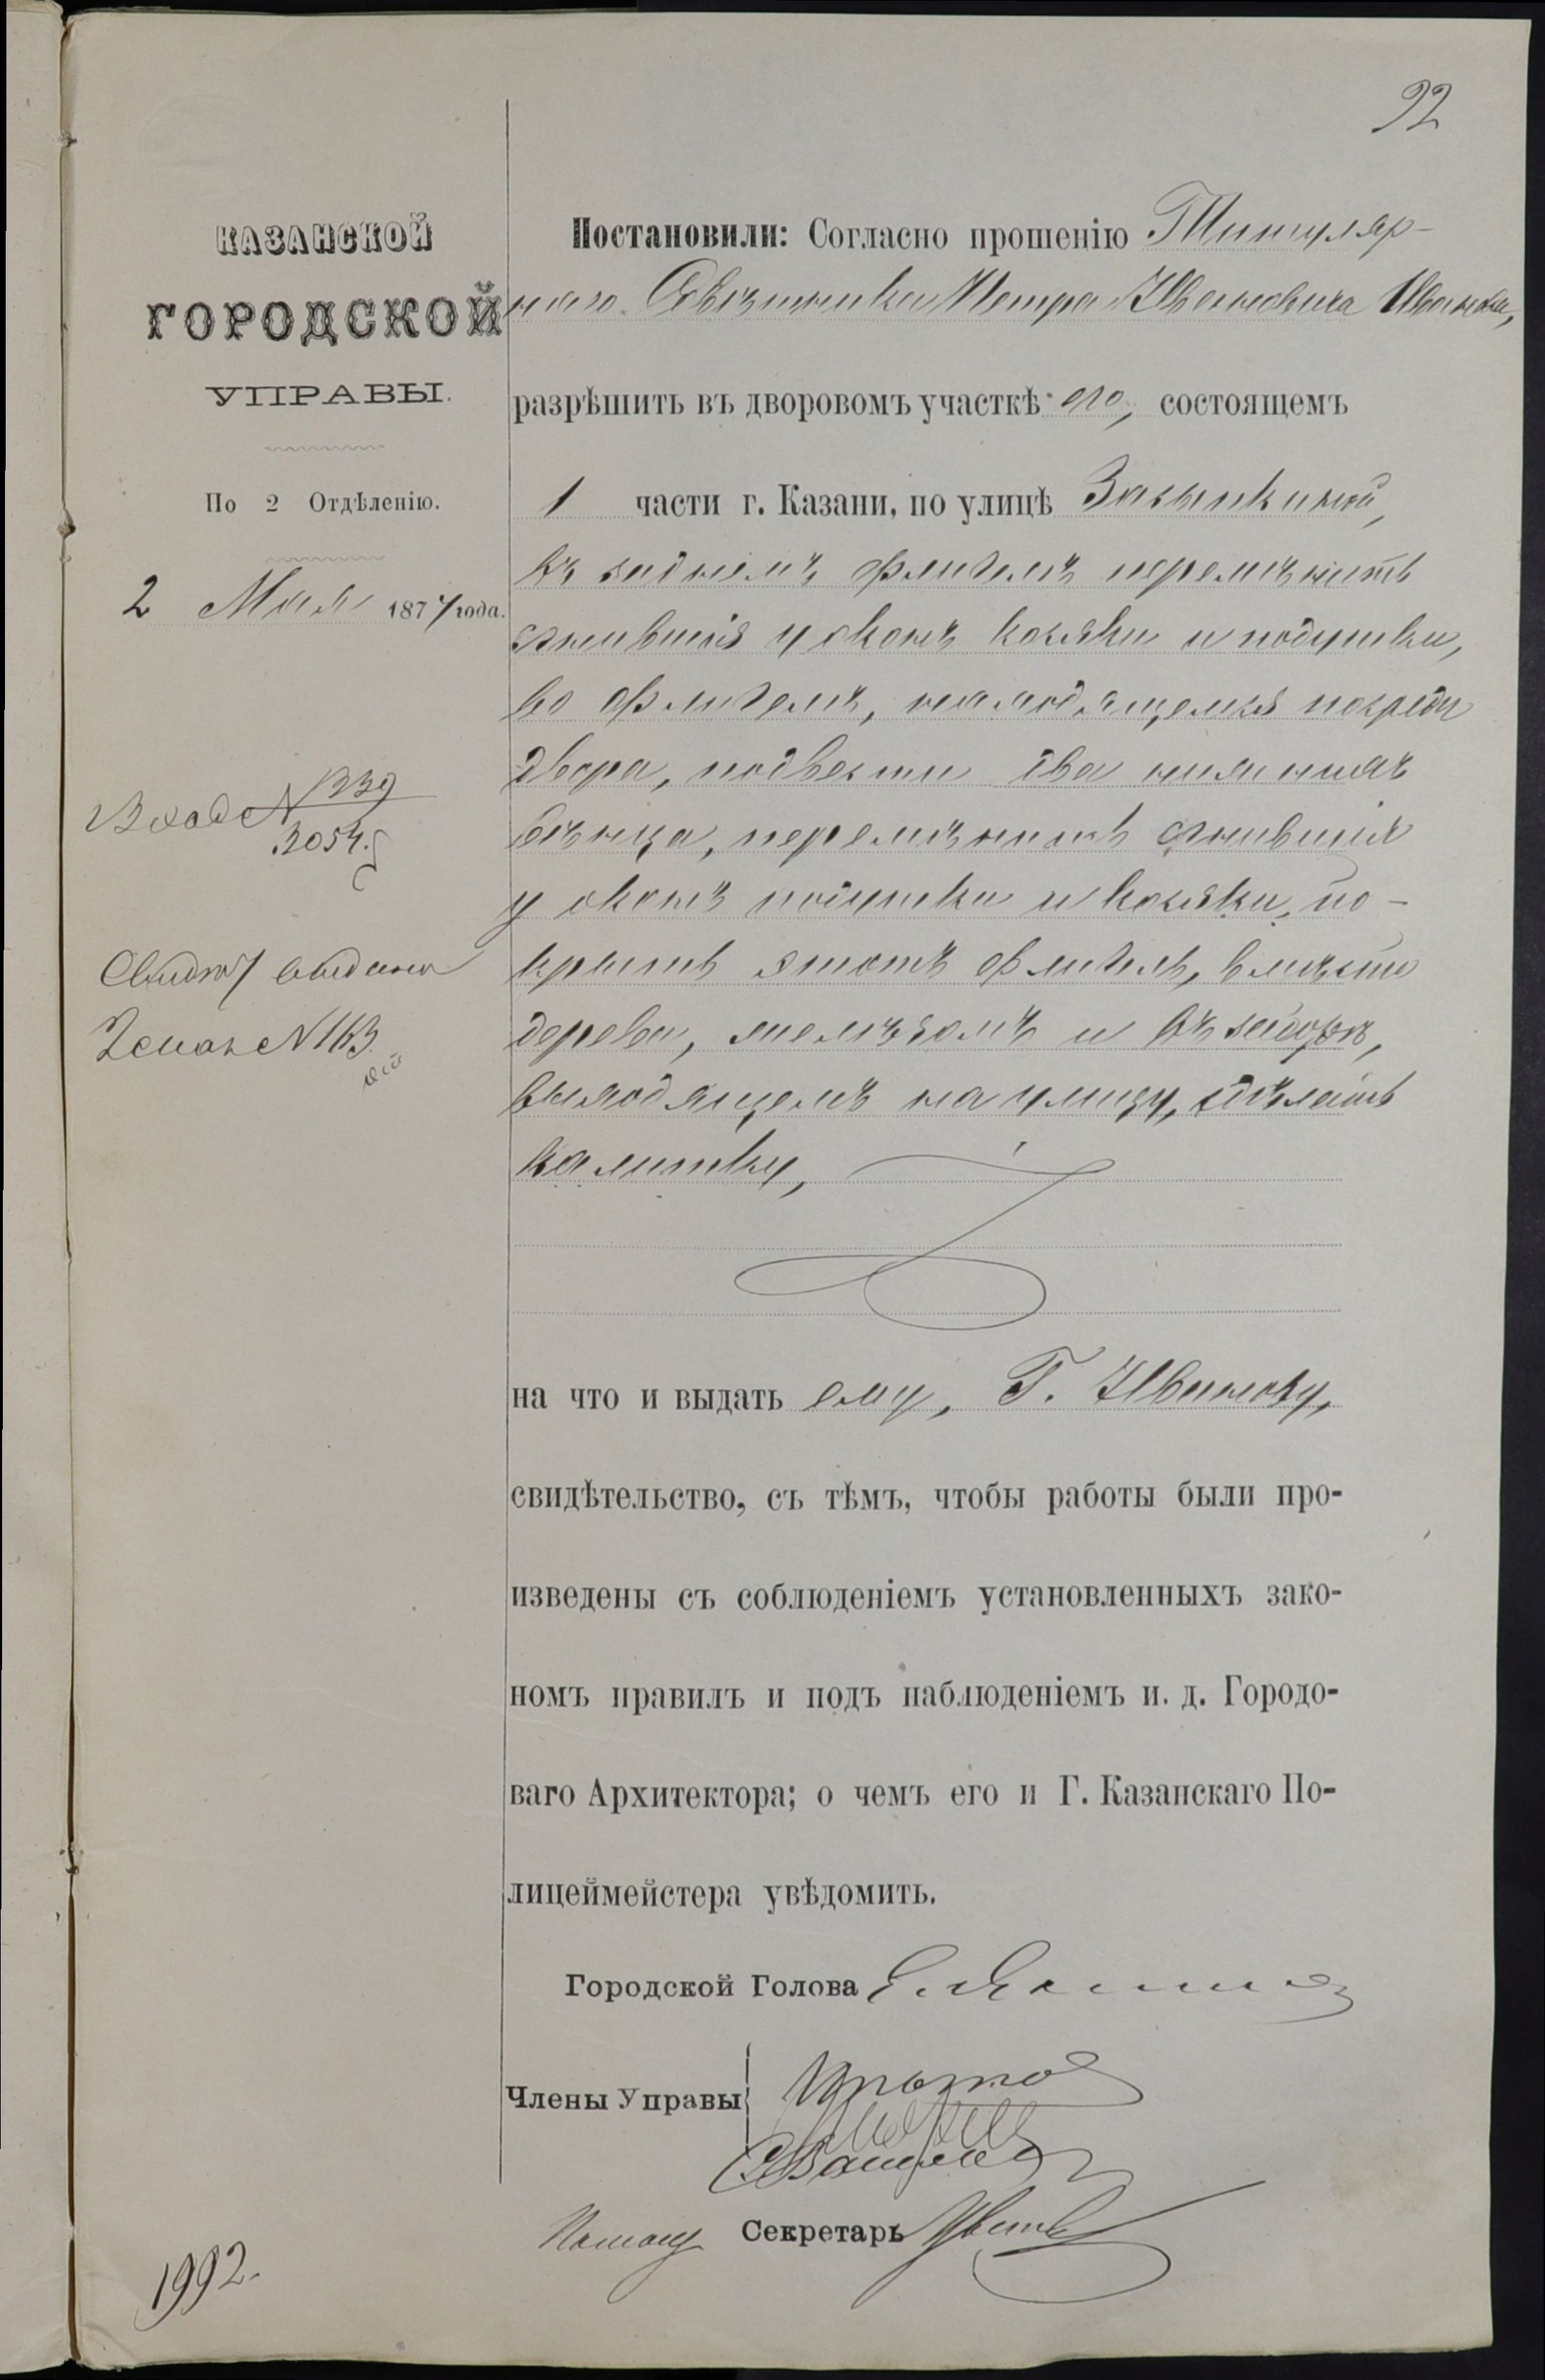 92
КАЗАНСКОЙ
ГОРОДСКОЙ
УПРАВЫ.
По 2 Отдѣленію.
2 Мая 1877 года.
Вход № 339
3054.
Свидѣт выдано
Земак № 163
1992.
Постановили: Согласно прошенію Титуляр-
наго Совѣтника Петра Ивановича Иванова,
разрѣшить въ дворовомъ участкѣ его, состоящемъ
1 части г. Казани, по улицѣ Засыпкиной,
въ заднемъ флигелѣ перемѣнить
сгнившія у оконъ косяки и подушки,
во флигелѣ, находящемся посреди
двора, подвести два нижнихъ
вѣнца, перемѣнить сгнившія
у оконъ подушки и косяки, по-
крыть этотъ флигель, вмѣсто
дерева, желѣзомъ и въ заборѣ,
выходящемъ на улицу, сдѣлать
калитку,
на что и выдать ему, Г. Иванову,
свидѣтельство, съ тѣмъ, чтобы работы были про-
изведены съ соблюденіемъ установленныхъ зако-
номъ правилъ и подъ наблюденіемъ и. д. Городо-
ваго Архитектора; о чемъ его и Г. Казанскаго По-
лицеймейстера увѣдомить.
Городской Голова
Члены Управы
Помощ Секретарь